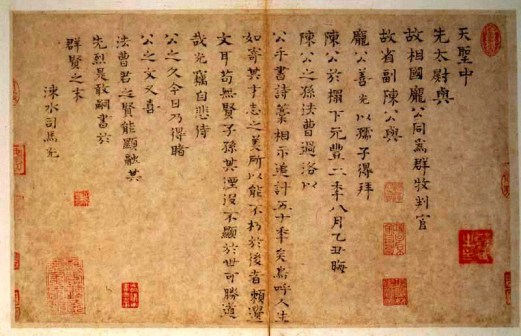 天聖中
先太尉與
故相國龐公同爲群牧判官
故省副陳公與
龐公善光以孺子得拜
陳公於榻下元豐二年八月乙丑晦
陳公之孫法曹過洛以
公手書詩藁相示追計五十年矣嗚呼人生
如寄其才志之美所以能不朽於後者賴遺
文耳苟無賢子孫其湮沒不顯於世可勝道
哉光竊自悲侍
公之久今日乃得睹
公之文又喜
法曹君之賢能顯融其
先烈是敢嗣書於
群賢之末
涑水司馬光